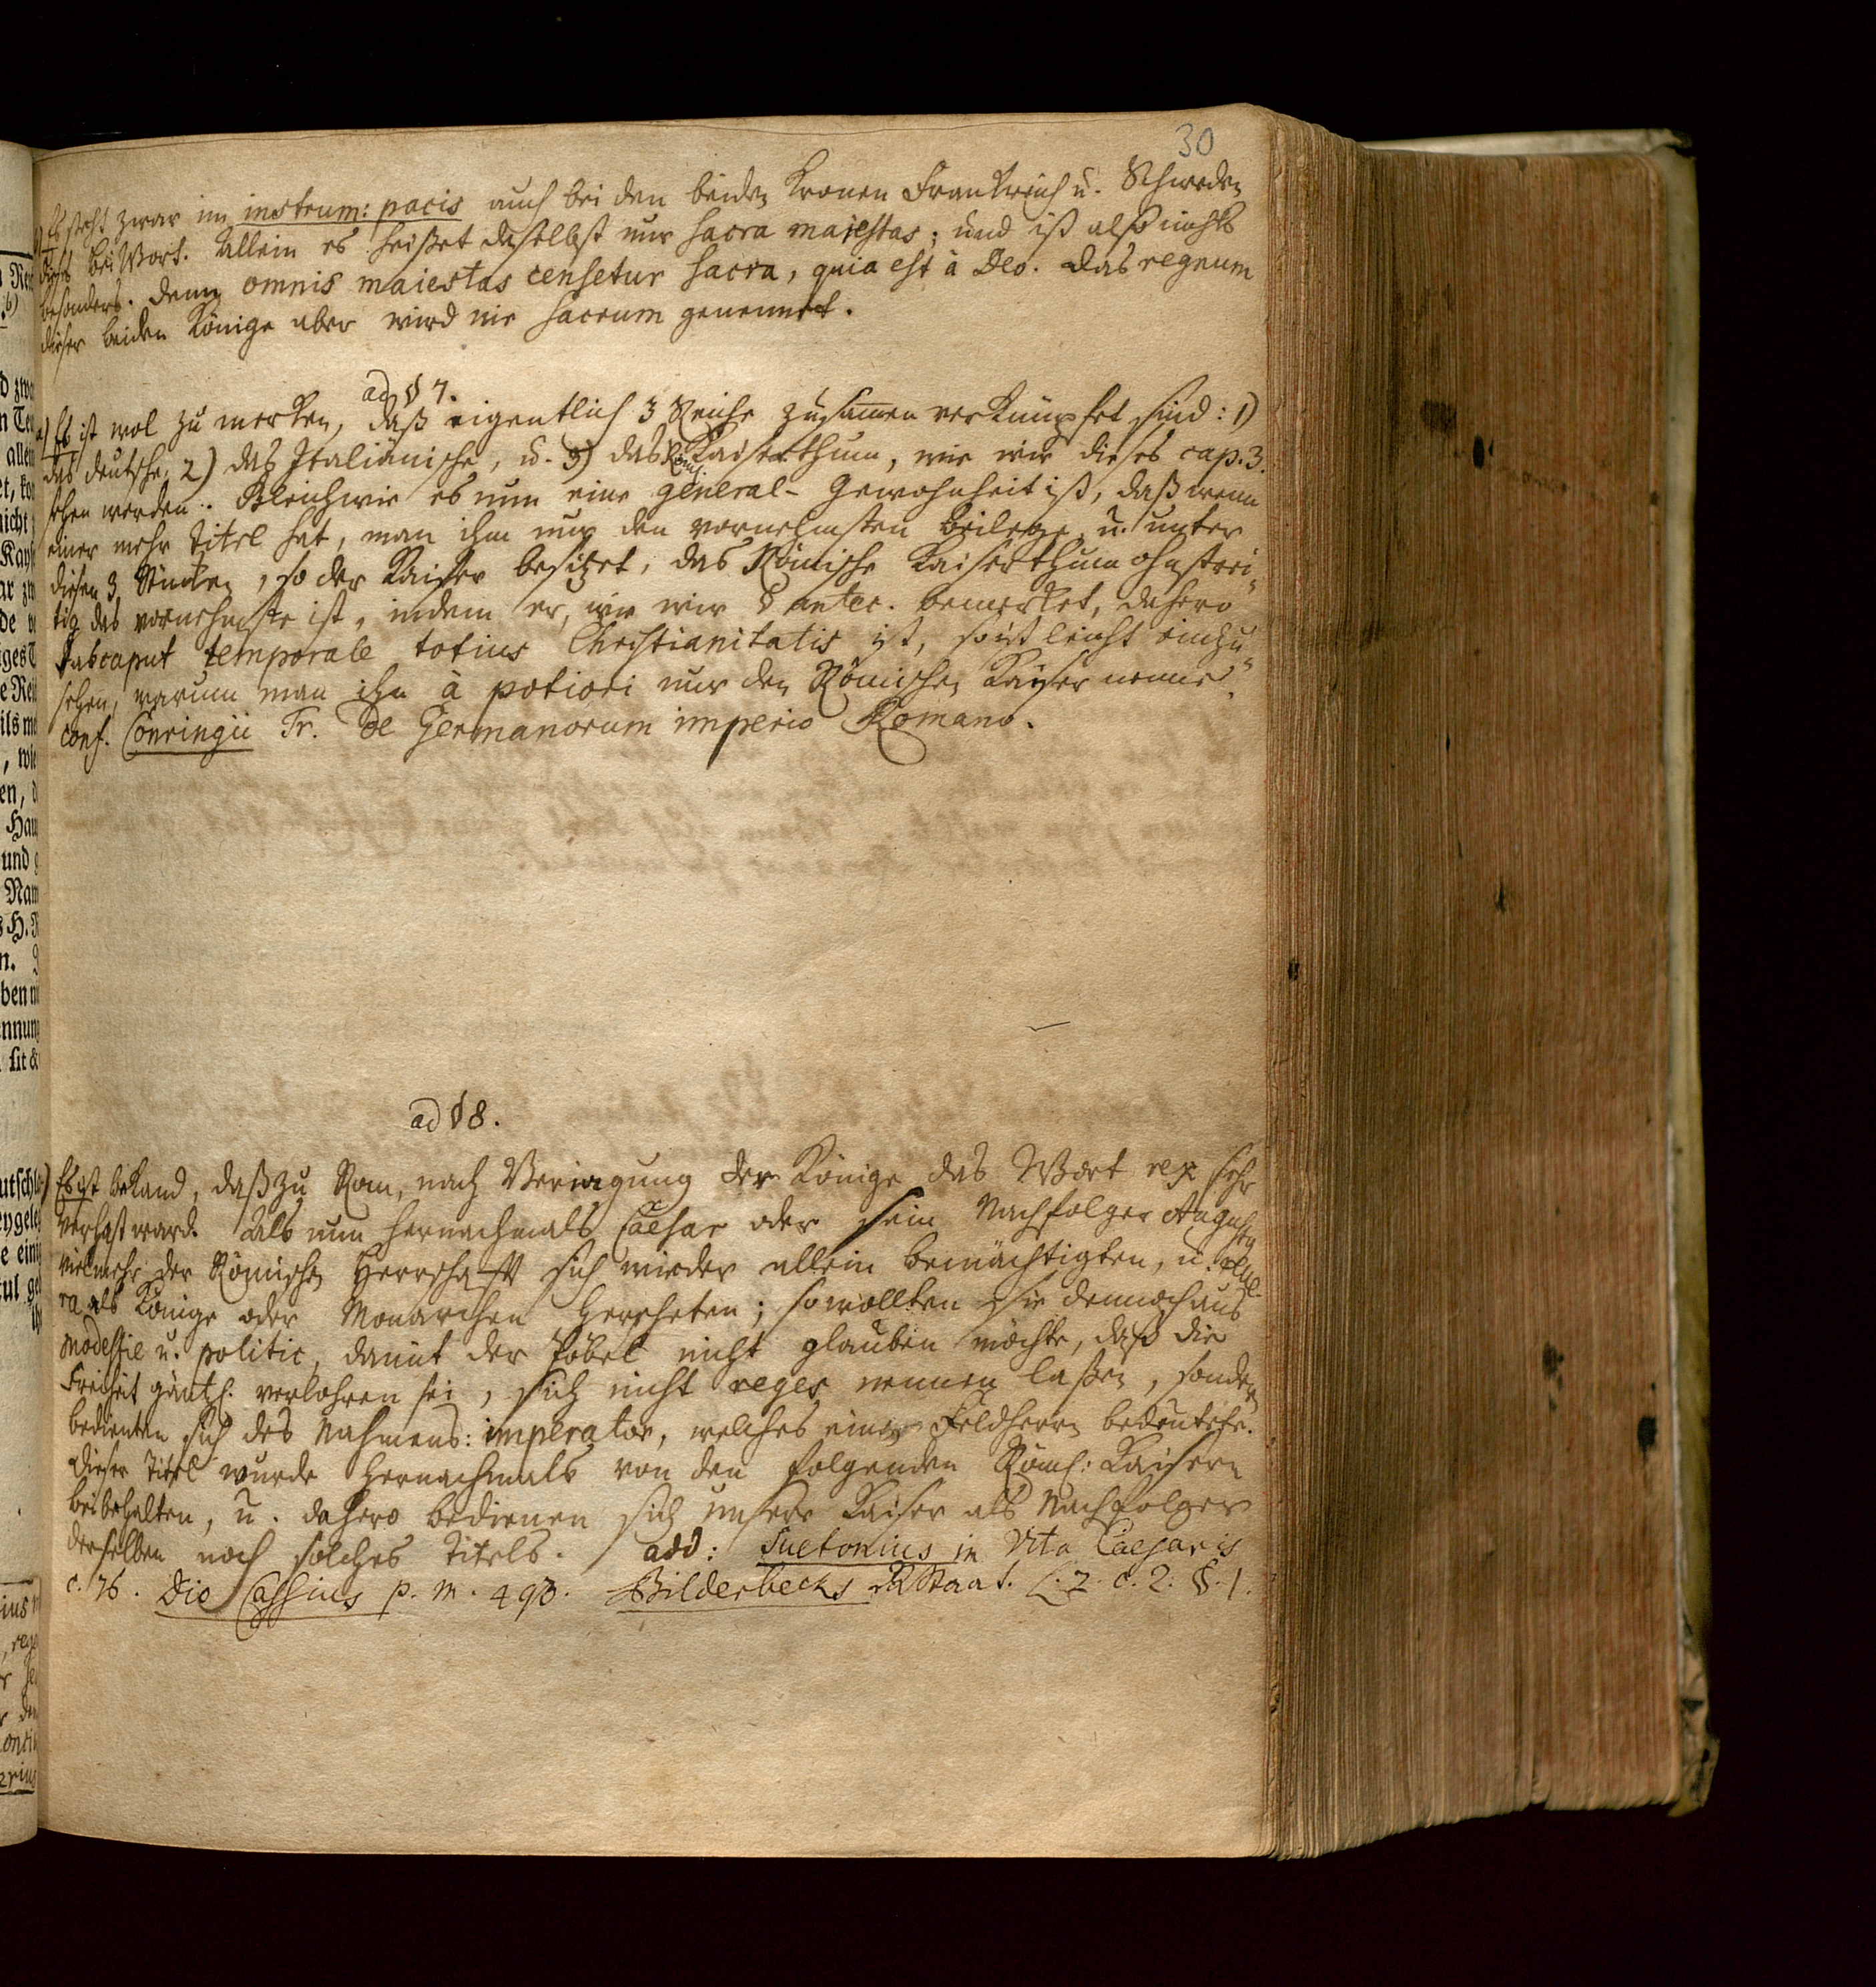 30
Es steht zwar im instrum: pacis auch bei den beiden Kronen Frankreich u. Schweden
dieses bei Wort. Allein es heißet daselbst nur sacra majestas; und ist also nichts
besonders. denn omnis maiestas censetur sacra, quia est à Deo. das regnum
dieser beiden Könige aber wird nie sacrum genennet.
ad § 7.
a) Es ist wol zu merken, daß eigentlich 3 Reiche zusamen verknüpfet sind: 1)
das deutsche, 2) das Italiänische, u. 3) das Röm. Kaiserthum, wie wir dieses cap. 3.
sehen werden. Gleichwie es nun eine general-Gewohnheit ist, daß wenn
einer mehr Titel hat, man ihm nur den vornehmsten beilege, u. unter
diesen 3 Stücken, so der Kaiser besitzet, das Römische Kaiserthum ohnstrei-
tig das vornehmste ist, indem er, wie wir § antec. bemerket, dahero
das caput temporale totius Christianitatis ist, so ist leicht einzu-
sehen, warum man ihn à potiori nur den Römischen Kayser nenne.
conf. Conringii Tr. de Germanorum imperio Romano.
ad § 8.
Es ist bekand, daß zu Rom, nach Verjagung der Könige das Wort rex sehr
verhast ward. Als nun hernachmals Caesar oder sein Nachfolger Augustus
vielmehr der Römischen Herrschafft sich wieder allein bemächtigten, u.
ra als Könige oder Monarchen herscheten; so wollten sie dennoch aus
modestie u. politic, damit der Pöbel nicht glauben möchte, daß die
Freiheit gäntzl. verlohren sei, sich nicht reges nennen laßen, sondern
bedienten sich des Nahmens: imperator, welches einen Feldherrn bedeutete.
Dieser Titel wurde hernachmals von den folgenden Römis: Kaisern
beibehalten, u. dahero bedienen sich unsere Kaiser als Nachfolger
derselben noch solches Titels. add: Suetonius in Vita Caesaris
c. 76. Dio Cassius p. m. 493. Bilderbecks R Staat. L. 2. c. 2. §. 1.